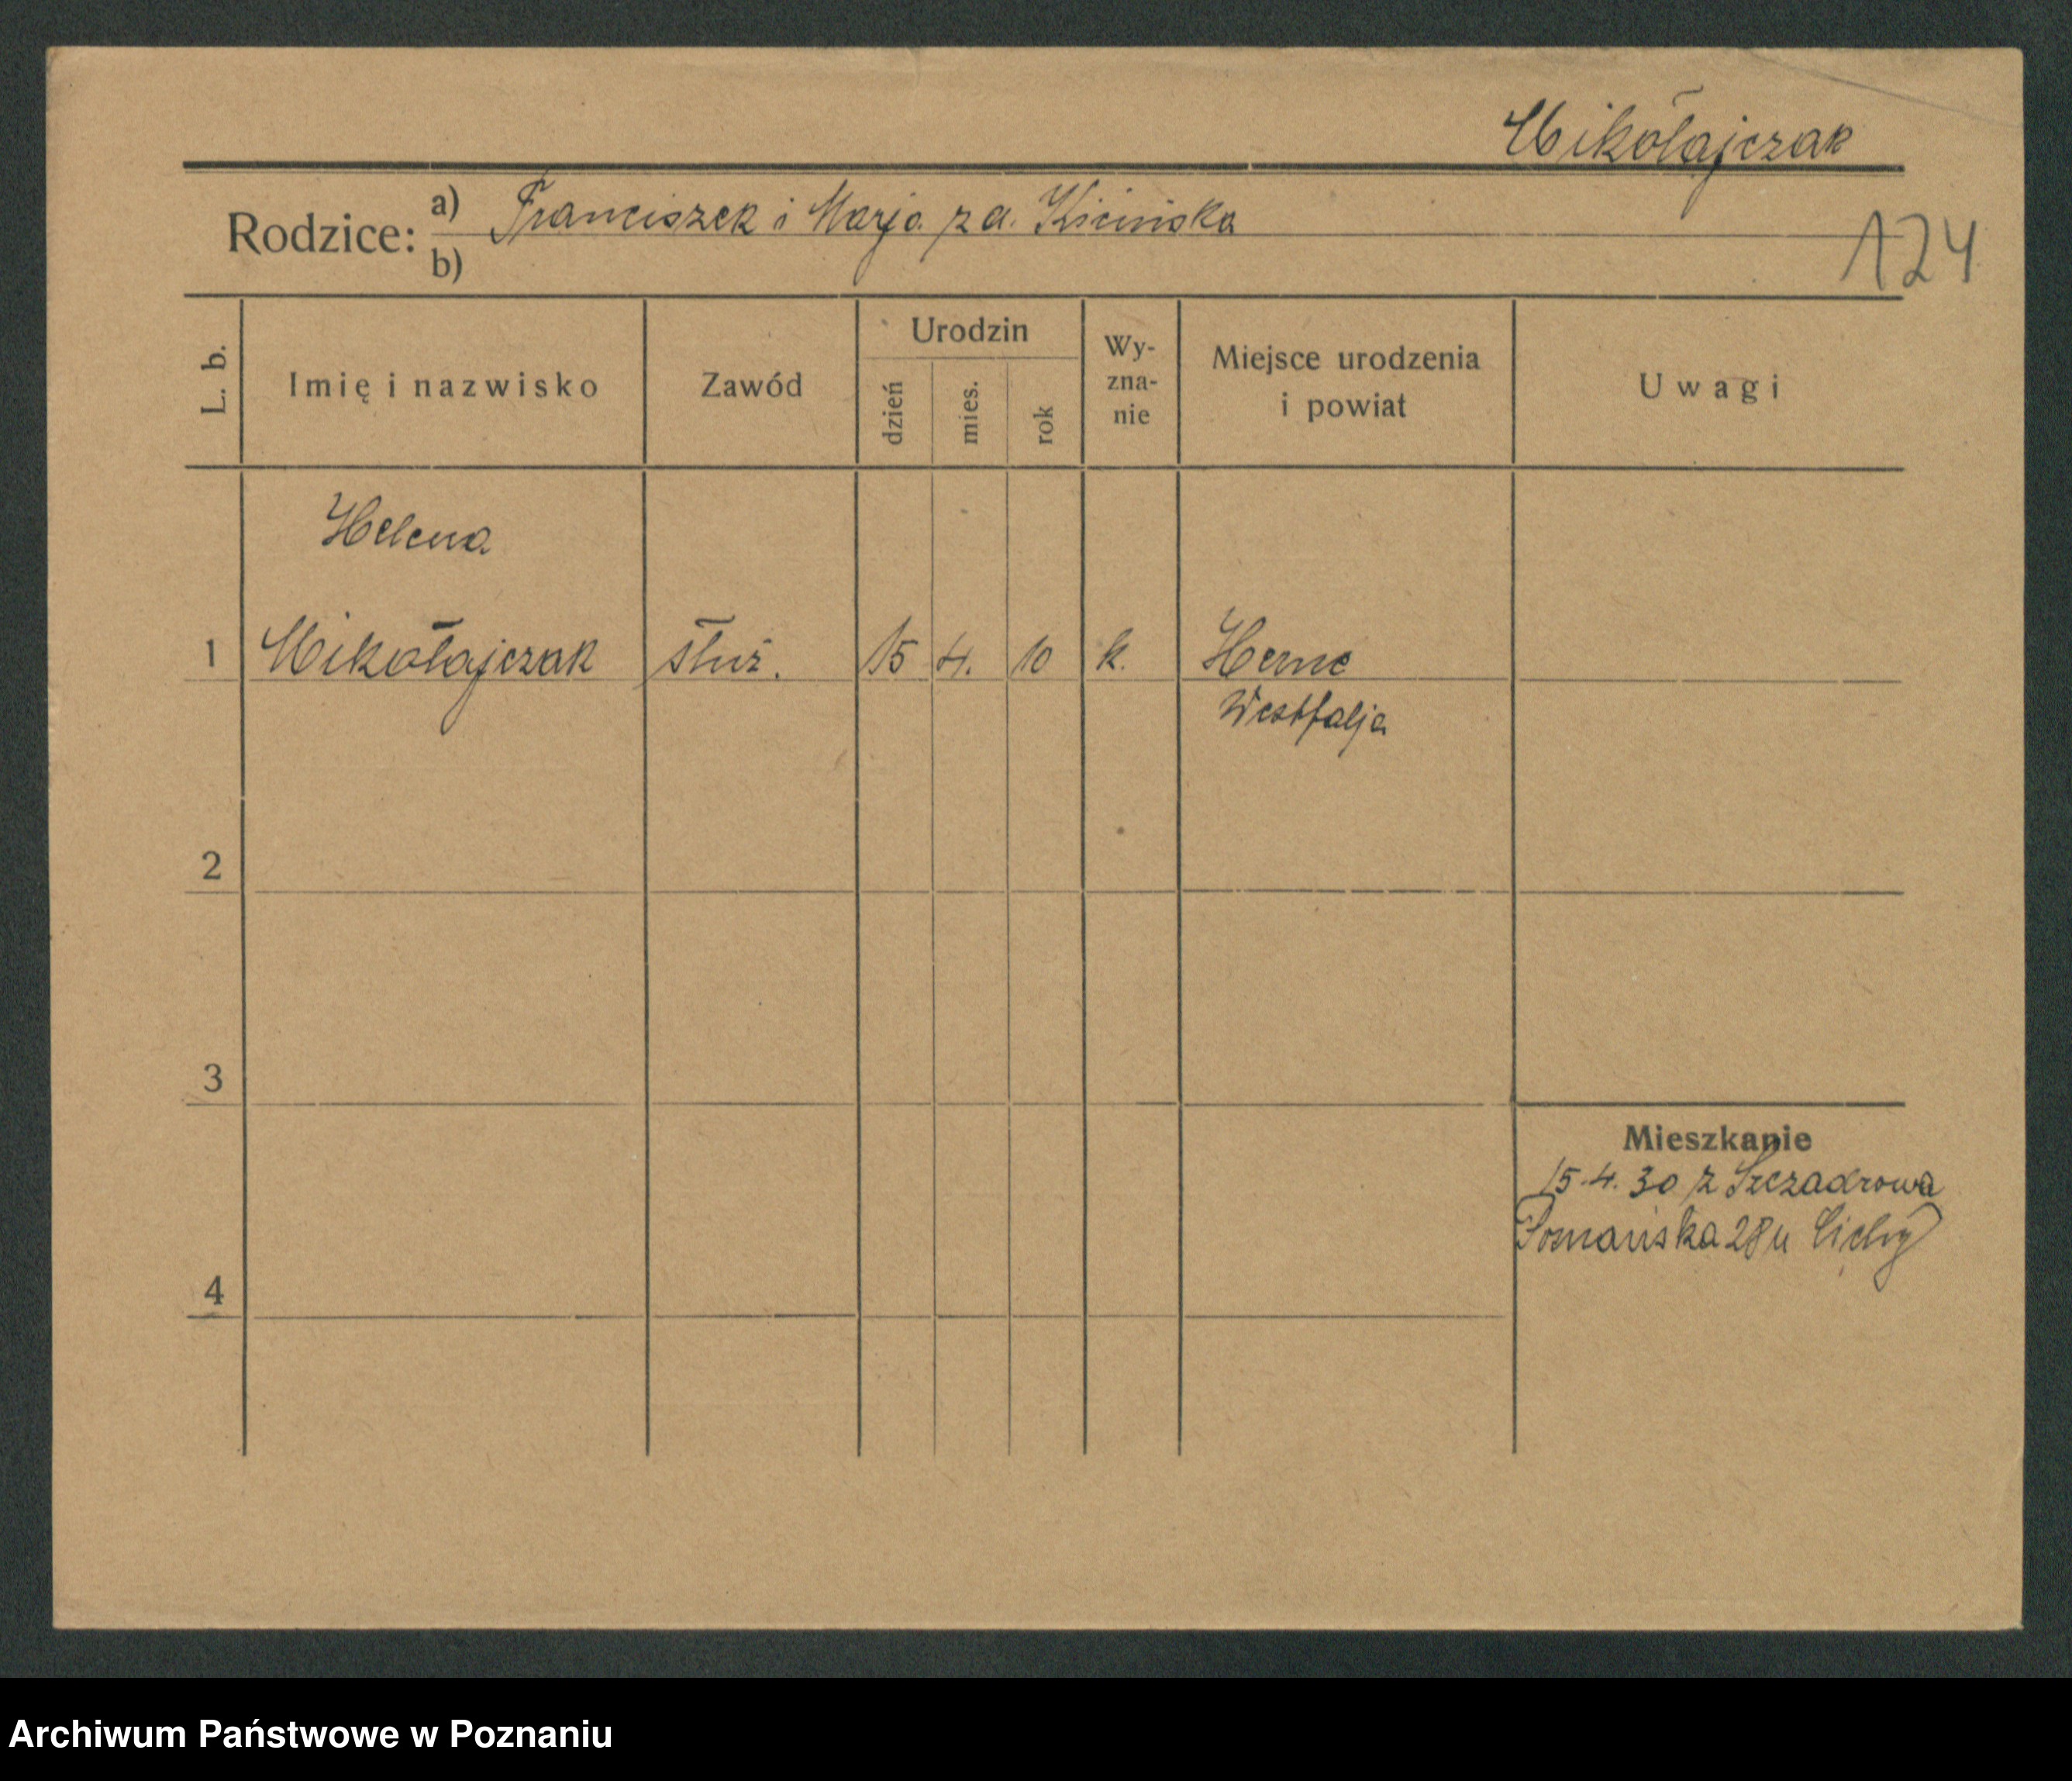 Mikołajczak
Rodzice: a) Franciszek i Marja z d. Kicińska
b)
124
L. b. Imię i nazwisko Zawód Urodzin dzień mies. rok Wy-zna-nie Miejsce urodzenia i powiat Uwagi
Helena
1 Mikołajczak służ. 15 4. 10 k. Herne
Westfalja
2
3
Mieszkanie
15.4.30 z Szczadrowa
Poznańska 28 u Cichy
4
Archiwum Państwowe w Poznaniu